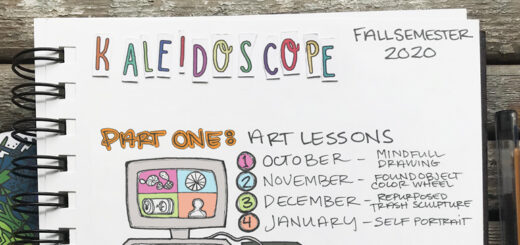 KALEIDOSCOPE
FALL SEMESTER
2020
PART ONE: ART LESSONS
1 OCTOBER – MINDFULL
DRAWING
2 NOVEMBER – FOUND OBJECT
COLOR WHEEL
3 DECEMBER – REPURPOSED
TRASH SCULPTURE
4 JANUARY – SELF PORTRAIT